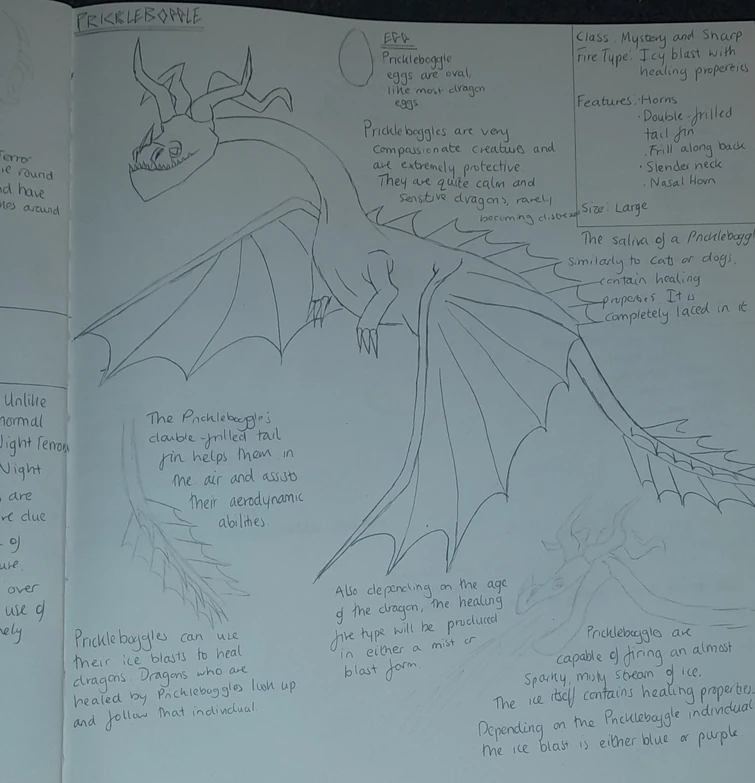 PRICKLEBOPPLE
EGG
Prickleboggle
eggs are oval,
like most dragon
eggs
Class: Mystery and Sharp
Fire Type: Icy blast with
healing properties
Features: Horns
· Double-frilled
tail fin
· Frill along back
· Slender neck
· Nasal Horn
Size: Large
Prickleboggles are very
compassionate creatures and
are extremely protective.
They are quite calm and
sensitive dragons, rarely
becoming
The saliva of a Prickleboggl
similarly to cats or dogs,
contain healing
properties. It is
completely laced in it
The Prickleboggle's
double-frilled tail
fin helps them in
the air and assists
their aerodynamic
abilities.
Prickleboggles can use
their ice blasts to heal
dragons. Dragons who are
healed by Prickleboggles look up
and follow that individual
Also depending on the age
of the dragon, the healing
fire type will be produced
in either a mist or
blast form.
Prickleboggles are
capable of firing an almost
sparky, misty stream of ice.
The ice itself contains healing properties.
Depending on the Prickleboggle individual
the ice blast is either blue or purple
error
round
nd have
around
Unlike
normal
Night Terror
Night
are
re due
of
ure.
over
use of
ely